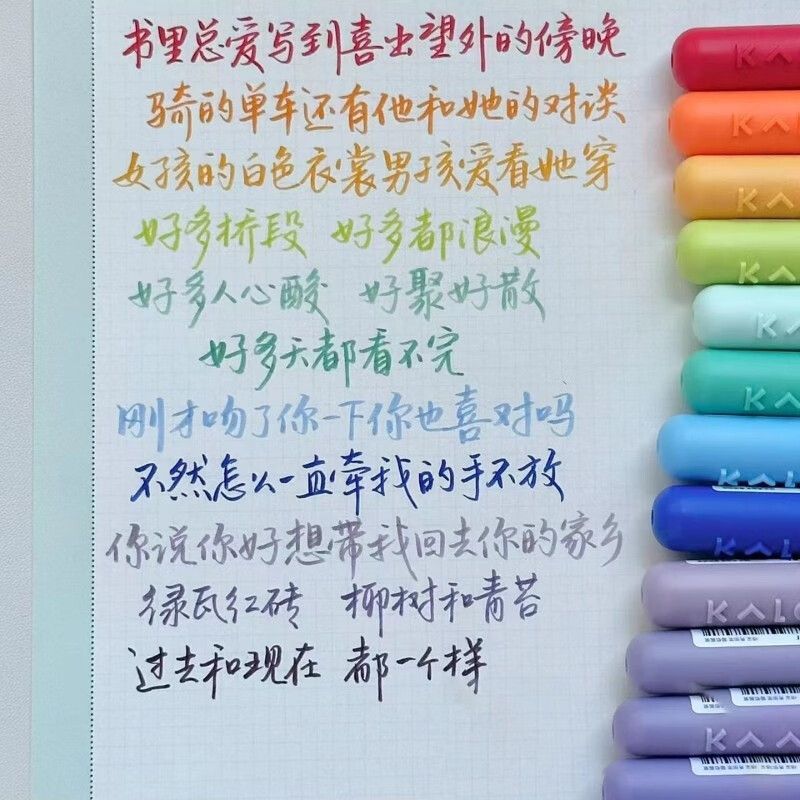 书里总爱写到喜出望外的傍晚
骑的单车还有他和她的对谈
女孩的白色衣裳男孩爱看她穿
好多桥段 好多都浪漫
好多人心酸 好聚好散
好多天都看不完
刚才吻了你一下你也喜对吗
不然怎么一直牵我的手不放
你说你好想带我回去你的家乡
绿瓦红砖 柳树和青苔
过去和现在 都一个样